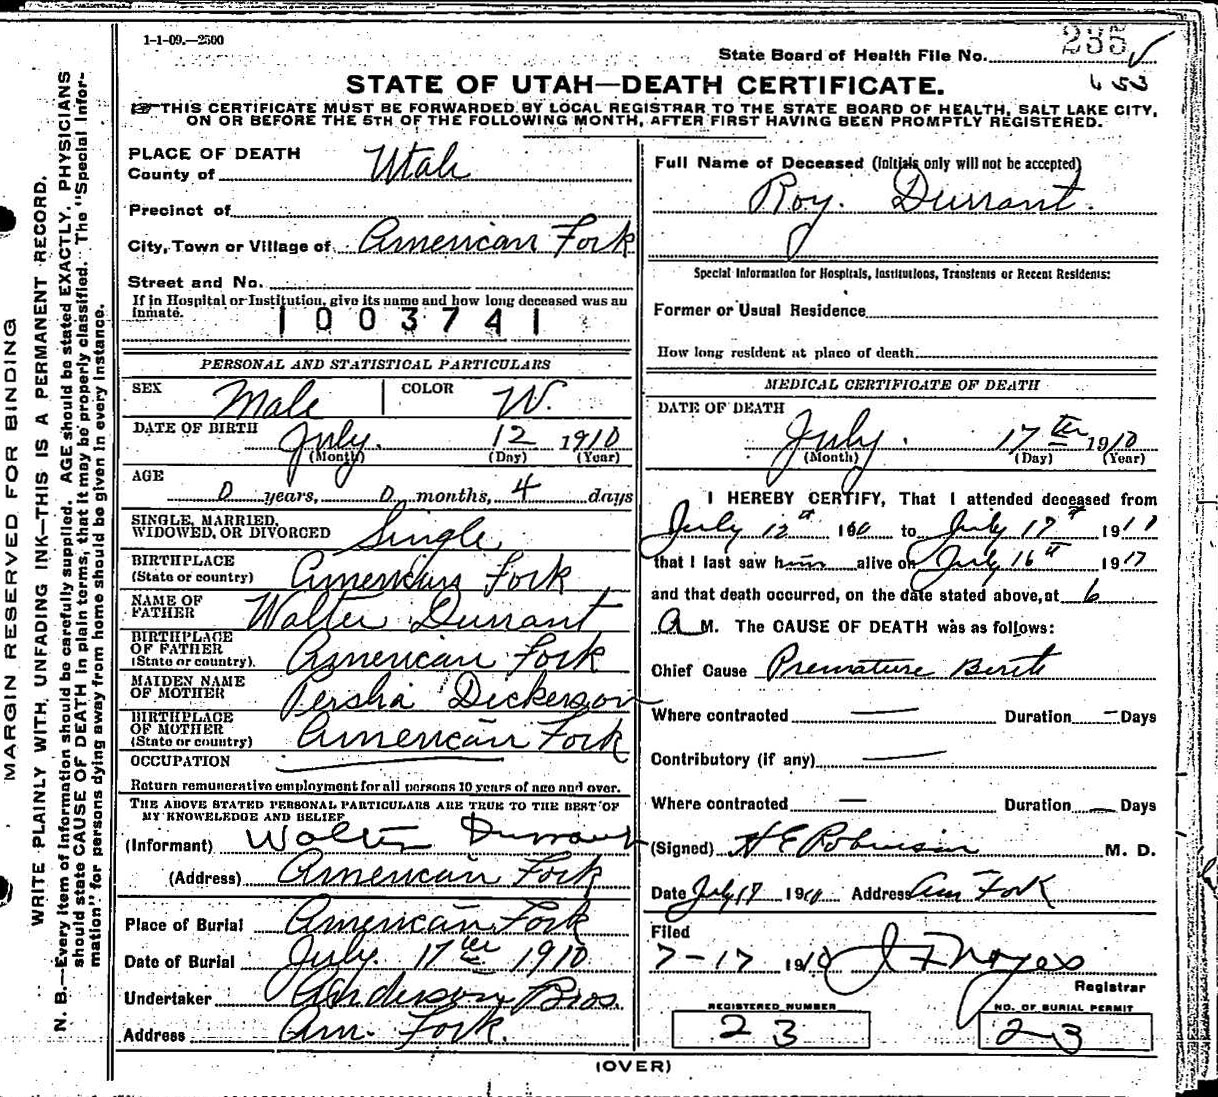 1-1-09.—2500
State Board of Health File No. 235
653
STATE OF UTAH—DEATH CERTIFICATE.
THIS CERTIFICATE MUST BE FORWARDED BY LOCAL REGISTRAR TO THE STATE BOARD OF HEALTH, SALT LAKE CITY,
ON OR BEFORE THE 5TH OF THE FOLLOWING MONTH, AFTER FIRST HAVING BEEN PROMPTLY REGISTERED.
MARGIN RESERVED FOR BINDING
WRITE PLAINLY WITH, UNFADING INK—THIS IS A PERMANENT RECORD.
N. B.—Every item of Information should be carefully supplied. AGE should be stated EXACTLY. PHYSICIANS
should state CAUSE OF DEATH in plain terms, that it may be properly classified. The "Special Infor-
mation" for persons dying away from home should be given in every instance.
PLACE OF DEATH
County of Utah
Precinct of
City, Town or Village of American Fork
Street and No.
If in Hospital or Institution, give its name and how long deceased was an
inmate.
1003741
PERSONAL AND STATISTICAL PARTICULARS
SEX Male COLOR W.
DATE OF BIRTH July. 12 1910
(Month) (Day) (Year)
AGE
0 years, 0 months, 4 days
SINGLE, MARRIED,
WIDOWED, OR DIVORCED Single
BIRTHPLACE
(State or country) American Fork
NAME OF
FATHER Walter Durrant
BIRTHPLACE
OF FATHER
(State or country). American Fork
MAIDEN NAME
OF MOTHER Persha Dickerson
BIRTHPLACE
OF MOTHER
(State or country) American Fork
OCCUPATION
Return remunerative employment for all persons 10 years of age and over.
THE ABOVE STATED PERSONAL PARTICULARS ARE TRUE TO THE BEST OF
MY KNOWLEDGE AND BELIEF
(Informant) Walter Durrant
(Address) American Fork
Place of Burial American Fork
Date of Burial July. 17th 1910
Undertaker Anderson Bros.
Address Am. Fork.
Full Name of Deceased (Initials only will not be accepted)
Roy. Durrant.
Special Information for Hospitals, Institutions, Transients or Recent Residents:
Former or Usual Residence
How long resident at place of death
MEDICAL CERTIFICATE OF DEATH
DATE OF DEATH
July. 17th 1910
(Month) (Day) (Year)
I HEREBY CERTIFY, That I attended deceased from
July 12th 190 to July 17th 191
that I last saw him alive on July 16th 191
and that death occurred, on the date stated above, at 6
A M. The CAUSE OF DEATH was as follows:
Chief Cause Premature Birth
Where contracted — Duration — Days
Contributory (if any) —
Where contracted — Duration — Days
(Signed) H E Robinson M. D.
Date July 1910 Address Am Fork
Filed
7-17 1910 J F Noyes
Registrar
REGISTERED NUMBER
23
NO. OF BURIAL PERMIT
23
(OVER)